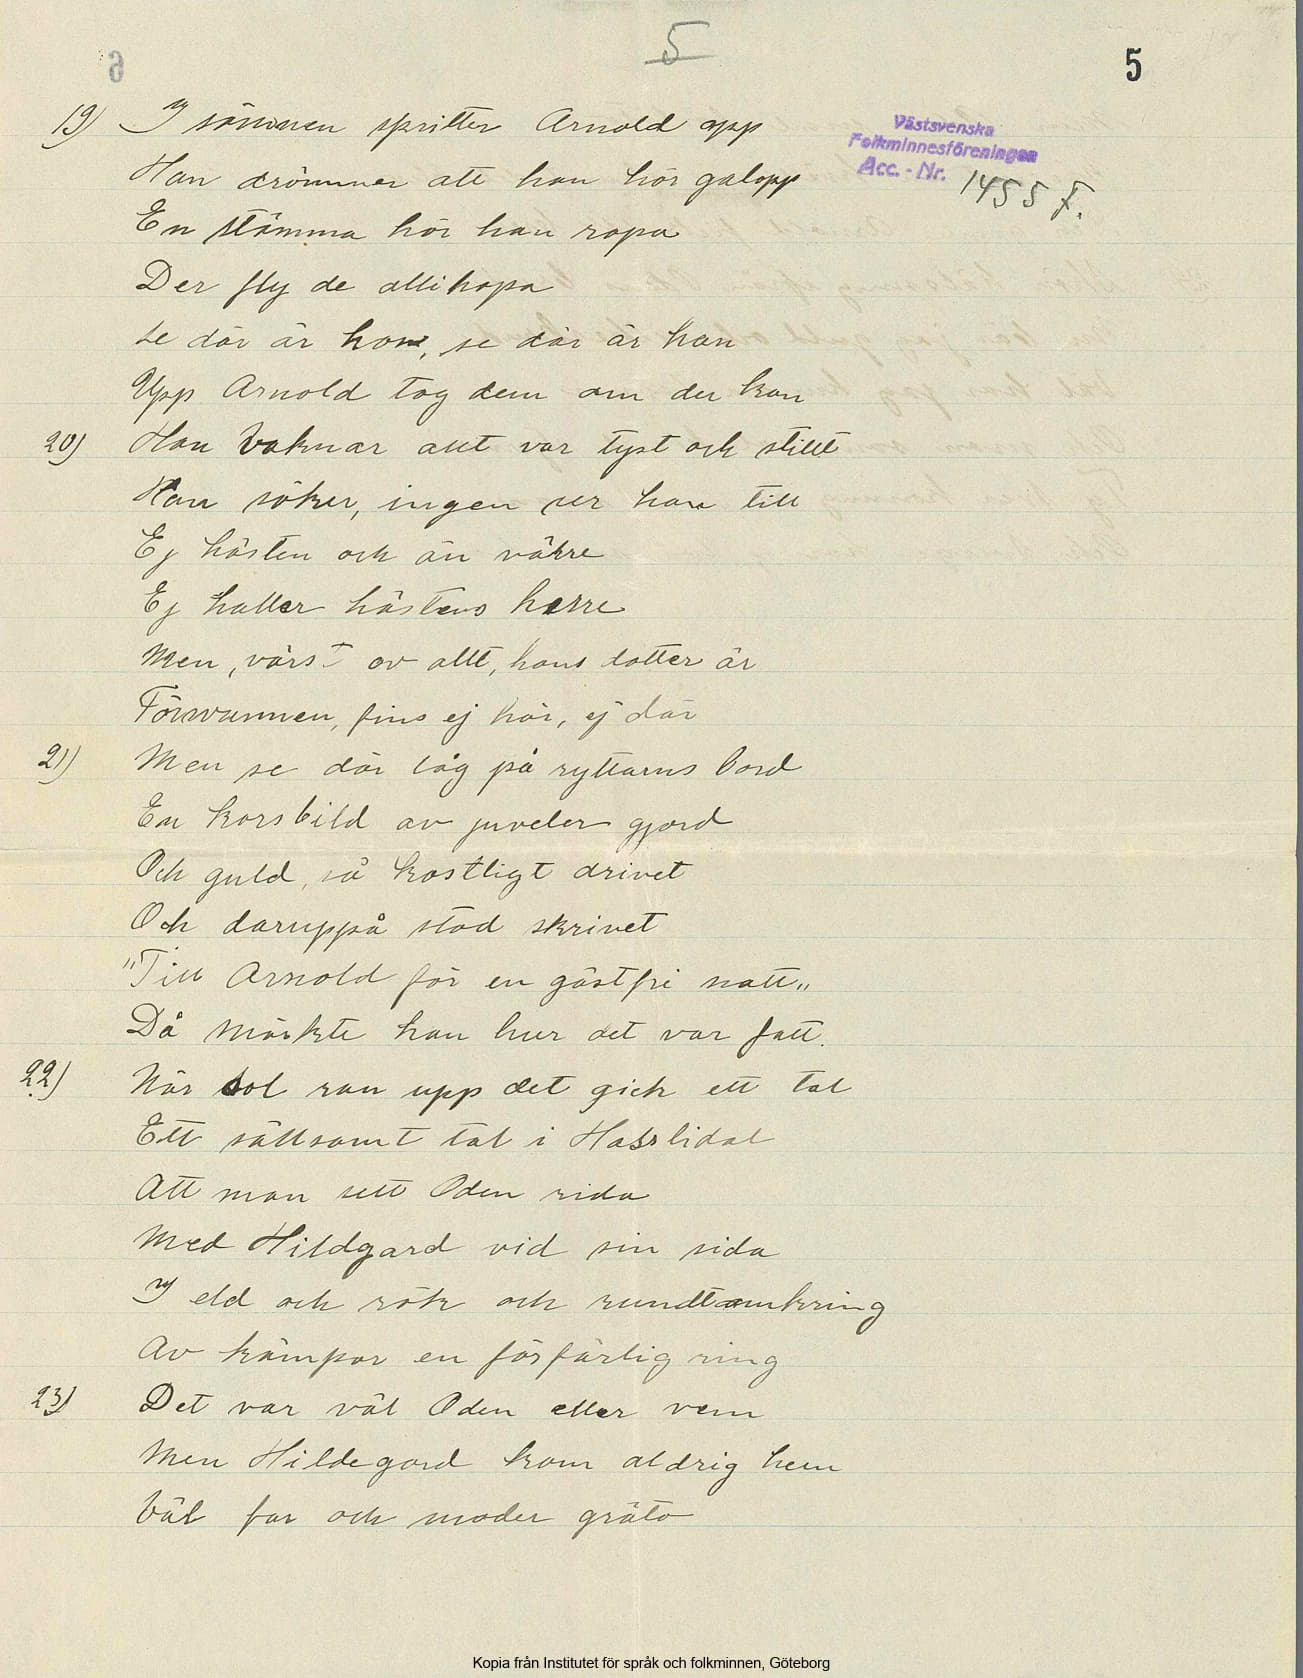 5
5
Västsvenska
Folkminnesföreningen
Acc. - Nr. 1455 F.
19) I sömnen spritter Arnold opp
Han drömmer att han hör galopp
En stämma hör han ropa
Der fly de allihopa
Se där är hon, se där är han
Upp Arnold tag dem om du kan
20) Han vaknar allt var tyst och stillt
Han söker, ingen ser han till
Ej hästen och än värre
Ej haller hästens herre
Men, värst av allt, hans dotter är
Försvunnen, fins ej här, ej där
21) Men se där låg på ryttarns bord
En korsbild av juveler gjord
Och guld, så kostligt drivet
Och daruppå stod skrivet
"Till Arnold för en gästfri natt"
Då märkte han hur det var fatt.
22) När sol ran upp det gick ett tal
Ett sällsamt tal i Hasslidal
Att man sett Oden rida
Med Hildgard vid sin sida
I eld och rök och rundtomkring
Av kämpar en förfärlig ring
23) Det var väl Oden eller vem
Men Hildegard kom aldrig hem
Väl far och moder gräto
Kopia från Institutet för språk och folkminnen, Göteborg